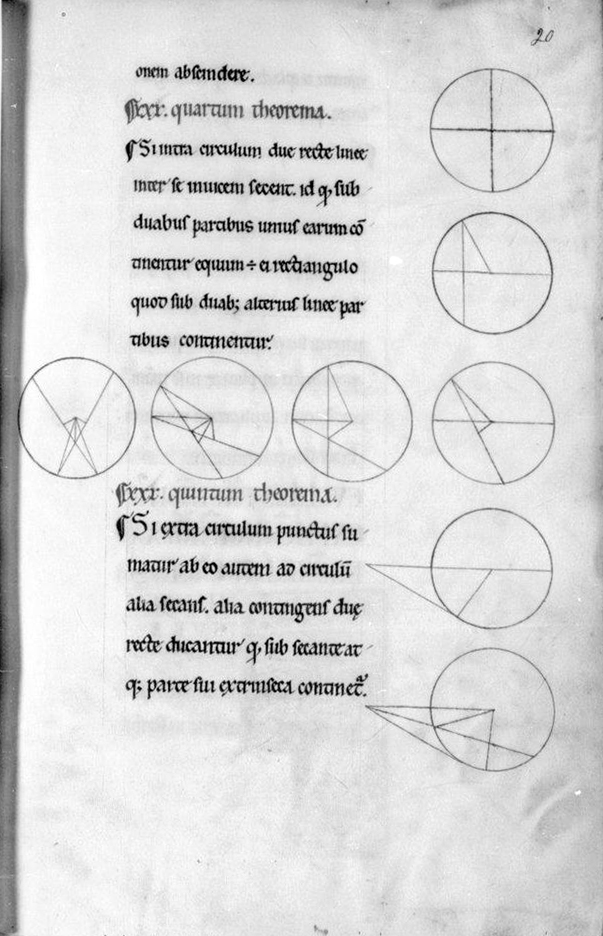 20
onem abscindere.
¶xxx. quartum theorema.
¶Si intra circulum due recte linee
inter se inuicem secent. id qḍ sub
duabus partibus unius earum cō
tinentur equum ÷ ei rectangulo
quod sub duab; alterius linee par
tibus continentur.
¶xxx. quintum theorema.
¶Si extra circulum punctus su
matur ab eo autem ad circulū
alia secans. alia contingens duę
recte ducantur qḍ sub secante at
q; parte sui extrinseca continet᷑.